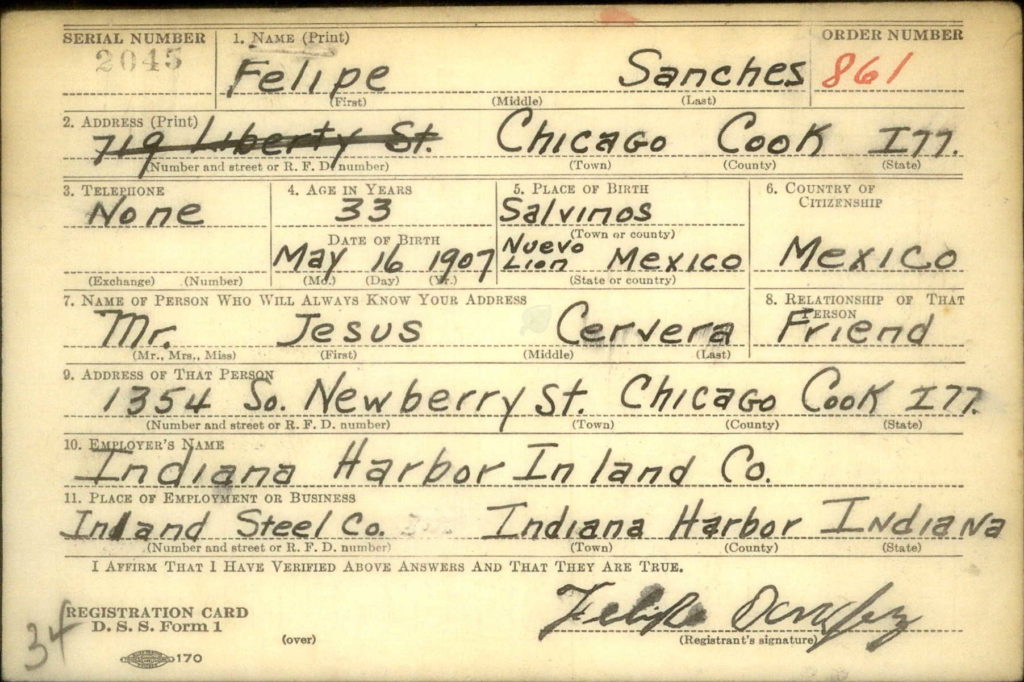 SERIAL NUMBER 1. NAME (Print) ORDER NUMBER
2045 Felipe Sanches 861
(First) (Middle) (Last)
2. ADDRESS (Print)
719 Liberty St. Chicago Cook Ill.
(Number and street or R. F. D. number) (Town) (County) (State)
3. TELEPHONE 4. AGE IN YEARS 5. PLACE OF BIRTH 6. COUNTRY OF
CITIZENSHIP
None 33 Salvinos
(Town or county)
DATE OF BIRTH Nuevo
May 16 1907 Lion Mexico Mexico
(Exchange) (Number) (Mo.) (Day) (Yr.) (State or country)
7. NAME OF PERSON WHO WILL ALWAYS KNOW YOUR ADDRESS 8. RELATIONSHIP OF THAT
PERSON
Mr. Jesus Cervera Friend
(Mr., Mrs., Miss) (First) (Middle) (Last)
9. ADDRESS OF THAT PERSON
1354 So. Newberry St. Chicago Cook Ill.
(Number and street or R. F. D. number) (Town) (County) (State)
10. EMPLOYER'S NAME
Indiana Harbor Inland Co.
11. PLACE OF EMPLOYMENT OR BUSINESS
Inland Steel Co. Indiana Harbor Indiana
(Number and street or R. F. D. number) (Town) (County) (State)
I AFFIRM THAT I HAVE VERIFIED ABOVE ANSWERS AND THAT THEY ARE TRUE.
REGISTRATION CARD Felipe
D. S. S. Form 1 (over) (Registrant's signature)
34
170